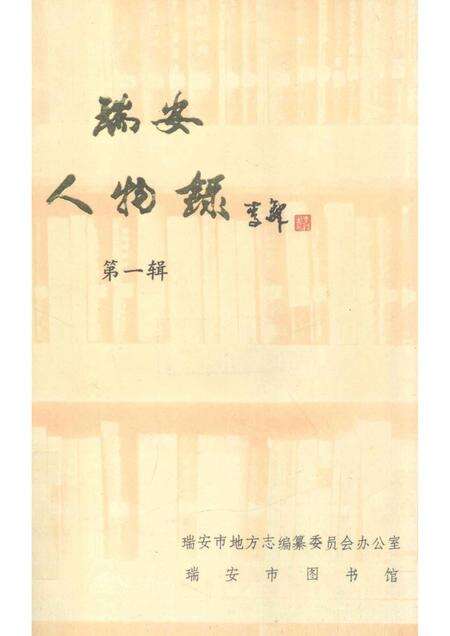 瑞安
人物録
第一辑
瑞安市地方志编纂委员会办公室
瑞安市图书馆